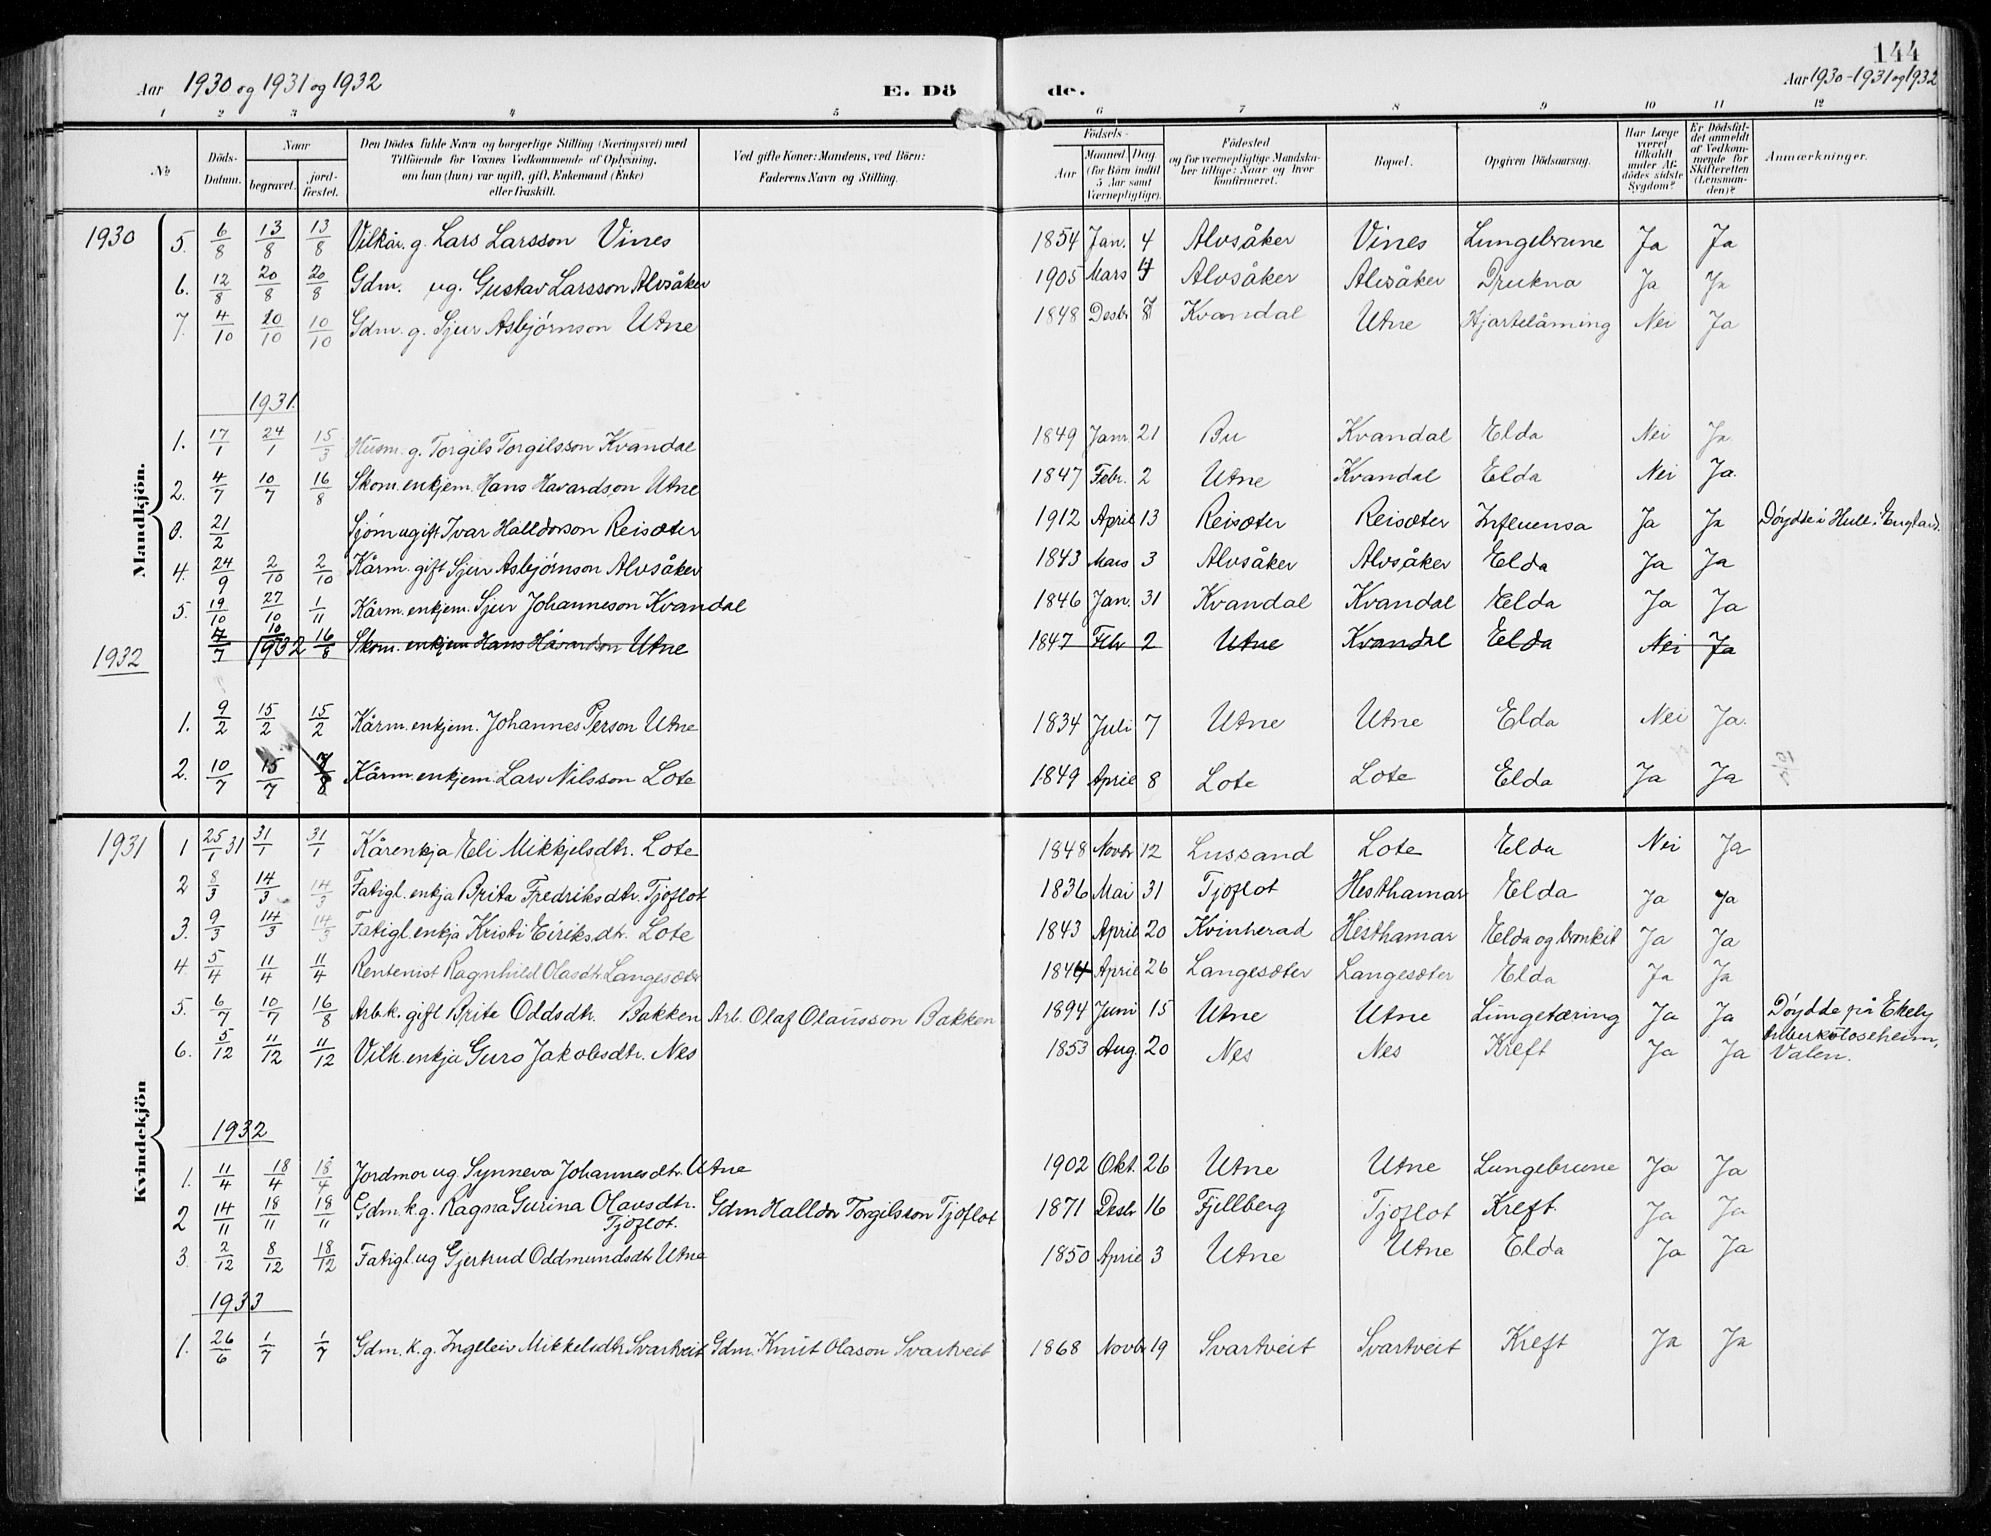 144
Aar 1930 og 1931 og 1932 E. Dö de. Aar 1930-1931 og 1932
1 2 3 4 5 6 7 8 9 10 11 12
No Döds-Datum. Naar begravet. jord-fæstet. Den Dödes fulde Navn og borgerlige Stilling (Næringsvei) med Tilföiende for Voxnes Vedkommende af Oplysning, om han (hun) var ugift, gift, Enkemand (Enke) eller fraskilt. Ved gifte Koner: Mandens, ved Börn: Faderens Navn og Stilling. Födsels- Aar Maaned Dag (for Börn indtil 5 Aar samt Værnepligtige). Födested og for værnepligtige Mandskaber tillige: Naar og hvor konfirmeret. Bopæl. Opgiven Dödsaarsag. Har Læge været tilkaldt under Afdödes sidste Sygdom? Er Dödsfaldet anmeldt af Vedkommende for Skifteretten (Lensmanden)? Anmærkninger.
Mandkjön.
1930 5. 6/8 13/8 13/8 Vilkår. g. Lars Larsson Vines 1854 Jan. 4 Alvsåker Vines Lungebrune Ja Ja
6. 12/8 20/8 20/8 Gdm. ug. Gustav Larsson Alvsåker 1905 Mars Alvsåker Alvsåker Drukna Ja Ja
7. 4/10 10/10 10/10 Gdm. g. Sjur Asbjørnson Utne 1848 Desbr Kvandal Utne Hjartelåming Nei Ja
1931.
1. 17/1 24/1 15/3 Husm. g. Torgils Torgilsson Kvandal 1849 Janr 21 Bu Kvandal Elda Nei Ja
2. 4/7 10/7 16/8 Skom. enkjem. Hans Havardson Utne 1847 Febr. 2 Utne Kvandal Elda Nei Ja.
21/2 Sjøm ugift Ivar Halldorson Reisæter 1912 April 13 Reisæter Reisæter Influensa Ja Ja Døydde i Hull i England.
4. 24/9 2/10 2/10 Kårm. gift Sjur Asbjørnson Alvsåker 1843 Mars 3 Alvsåker Alvsåker Elda Ja Ja
5 19/10 27/10 1/11 Kårm. enkjem. Sjur Johanneson Kvandal 1846 Jan. 31 Kvandal Kvandal Elda Ja Ja
7/7 10 16/8 Skom. enkjem Hans Håvardson Utne 1847 Febr 2 Utne Kvandal Elda Nei Ja
1932 1932
1. 9/2 15/2 15/2 Kårm. enkjem. Johannes Person Utne 1834 Juli 7 Utne Utne Elda Nei Ja.
2. 10/7 15/7 7/8 Kårm. enkjem. Lars Nilsson Lote 1849 April 8 Lote Lote Elda Ja Ja
Kvindekjön
1931 1 25/1 31 31/1 31/1 Kårenkja Eli Mikkjelsdtr. Lote 1848 Novbr 12 Lussand Lote Elda Nei Ja
2 8/3 14/3 14/3 Fatigl. enkja Brita Fredriksdtr. Tjoflot 1836 Mai 31 Tjoflot Hesthamar Elda Ja Ja
3. 9/3 14/3 14/3 Fatigl. enkja Kristi Eiriksdtr. Lote 1843 April 20 Kvinherad Hesthamar Elda og bronkit Ja Ja
4. 5/4 11/4 11/4 Rentenist Ragnhild Olasdtr Langesæter 1844 April 26 Langesæter Langesæter Elda Ja Ja
5. 6/7 10/7 16/8 Arbk. gift Brita Oddsdtr. Bakken Arb. Olaf Olausson Bakken 1894 Juni 15 Utne Utne Lungetæring Ja Ja Døydde på Ekely tuberkuloseheim, Valen.
6. 5/12 11/12 11/12 Vilk. enkja Guro Jakobsdtr. Nes 1853 Aug. 20 Nes Nes Kreft Ja Ja
1932
1. 11/4 18/4 18/4 Jordmor ug. Synneva Johannesdtr. Utne 1902 Okt. 26 Utne Utne Lungebrune Ja Ja
2 14/11 18/11 18/11 Gdm. k. g. Ragna Gurina Olavsdtr. Tjoflot. Gdm Halldor Torgilsson Tjoflot 1871 Desbr 16 Fjellberg Tjoflot Kreft Ja Ja
3. 2/12 8/12 18/12 Fatigl. ug Gjertrud Oddmundsdtr Utne 1850 April 3 Utne Utne Elda Ja Ja
1933
1. 26/6 1/7 1/7 Gdm. k. g. Ingeleiv Mikkelsdtr Svartveit Gdm. Knut Olason Svartveit 1868 Novbr 19 Svartveit Svartveit Kreft Ja Ja